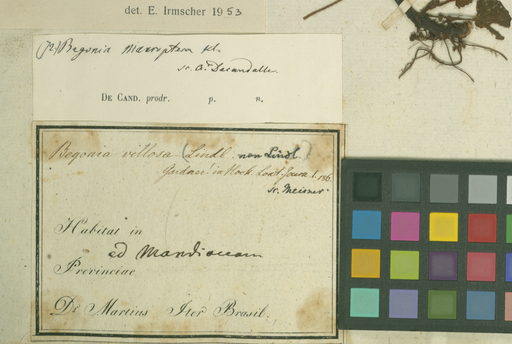 det. E. Irmscher 1953
Begonia macroptera Kl.
sc. A. Decandolle.
De Cand. prodr. p. n.
Begonia villosa (Lindl. non Lindl.)
Gardner! in Hook. Lond. Journ.
sc. Meisner
Habitat in
ad Mandioccam
Provinciae
Dr Martius Iter Brasil.